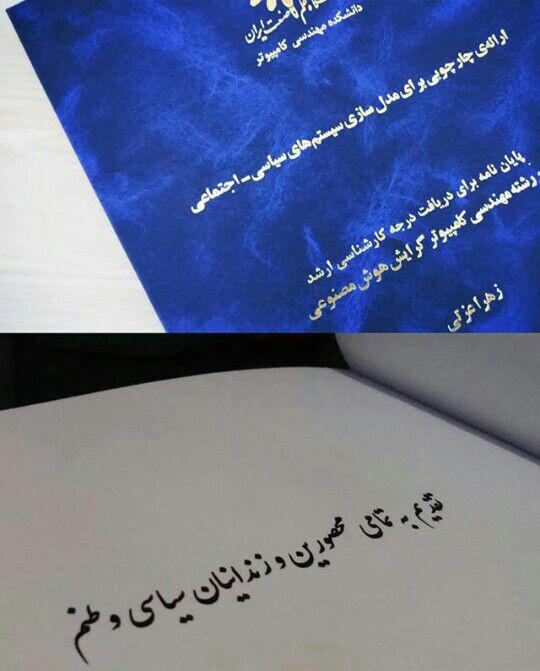 علم و صنعت ایران
دانشکده مهندسی کامپیوتر
ارائه‌ی چارچوبی برای مدل سازی سیستم های سیاسی - اجتماعی
پایان نامه برای دریافت درجه کارشناسی ارشد
رشته مهندسی کامپیوتر گرایش هوش مصنوعی
زهرا عزتی
تقدیم به تمامی محصورین و زندانیان سیاسی وطنم